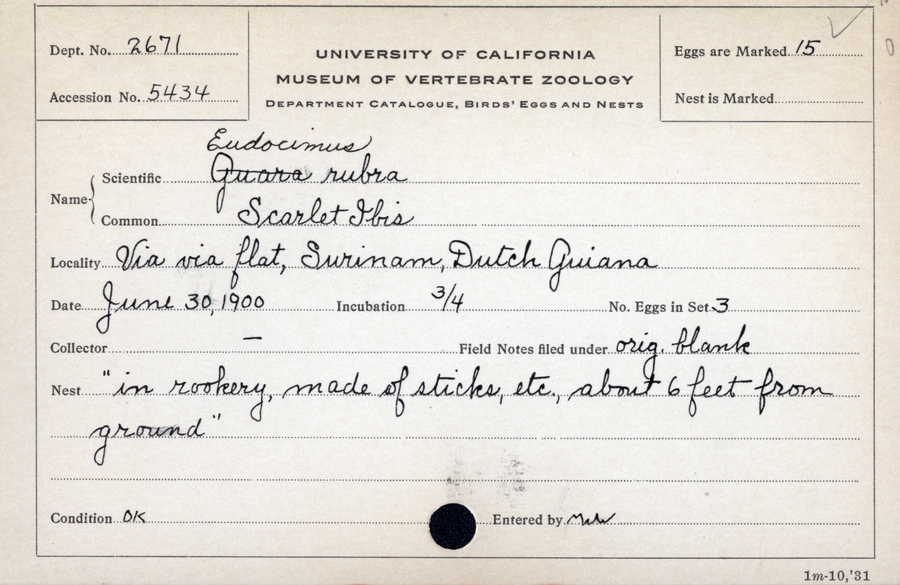 Dept. No. 2671
Accession No. 5434
UNIVERSITY OF CALIFORNIA
MUSEUM OF VERTEBRATE ZOOLOGY
DEPARTMENT CATALOGUE, BIRDS' EGGS AND NESTS
Eggs are Marked 15
Nest is Marked
Eudocimus
Name Scientific Guara rubra
Common Scarlet Ibis
Locality Via via flat, Surinam, Dutch Guiana
Date June 30, 1900 Incubation 3/4 No. Eggs in Set 3
Collector — Field Notes filed under orig. blank
Nest "in rookery, made of sticks, etc., about 6 feet from
ground"
Condition OK Entered by
1m-10,'31